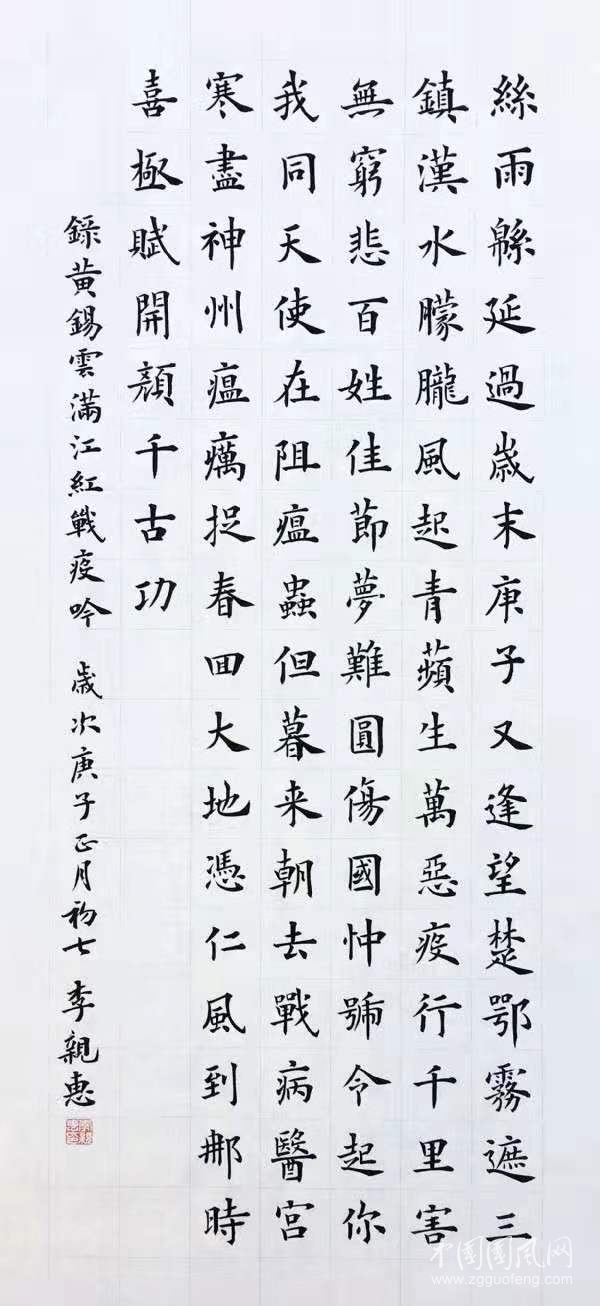 絲雨緜延過歲末庚子又逢望楚鄂霧遮三
鎮漢水朦朧風起青蘋生萬惡疫行千里害
無窮悲百姓佳節夢難圓傷國忡號令起你
我同天使在阻瘟蟲但暮来朝去戰病醫宮
寒盡神州瘟癘捉春回大地憑仁風到那時
喜極賦開顏千古功
錄黃錫雲滿江紅戰疫吟 歲次庚子正月初七 李親惠
中国国风网
www.zgguofeng.com